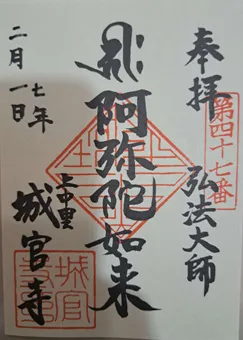 奉拝
第四十七番
弘法大師
阿弥陀如来
上中里
城官寺
七年
二月一日
城官寺